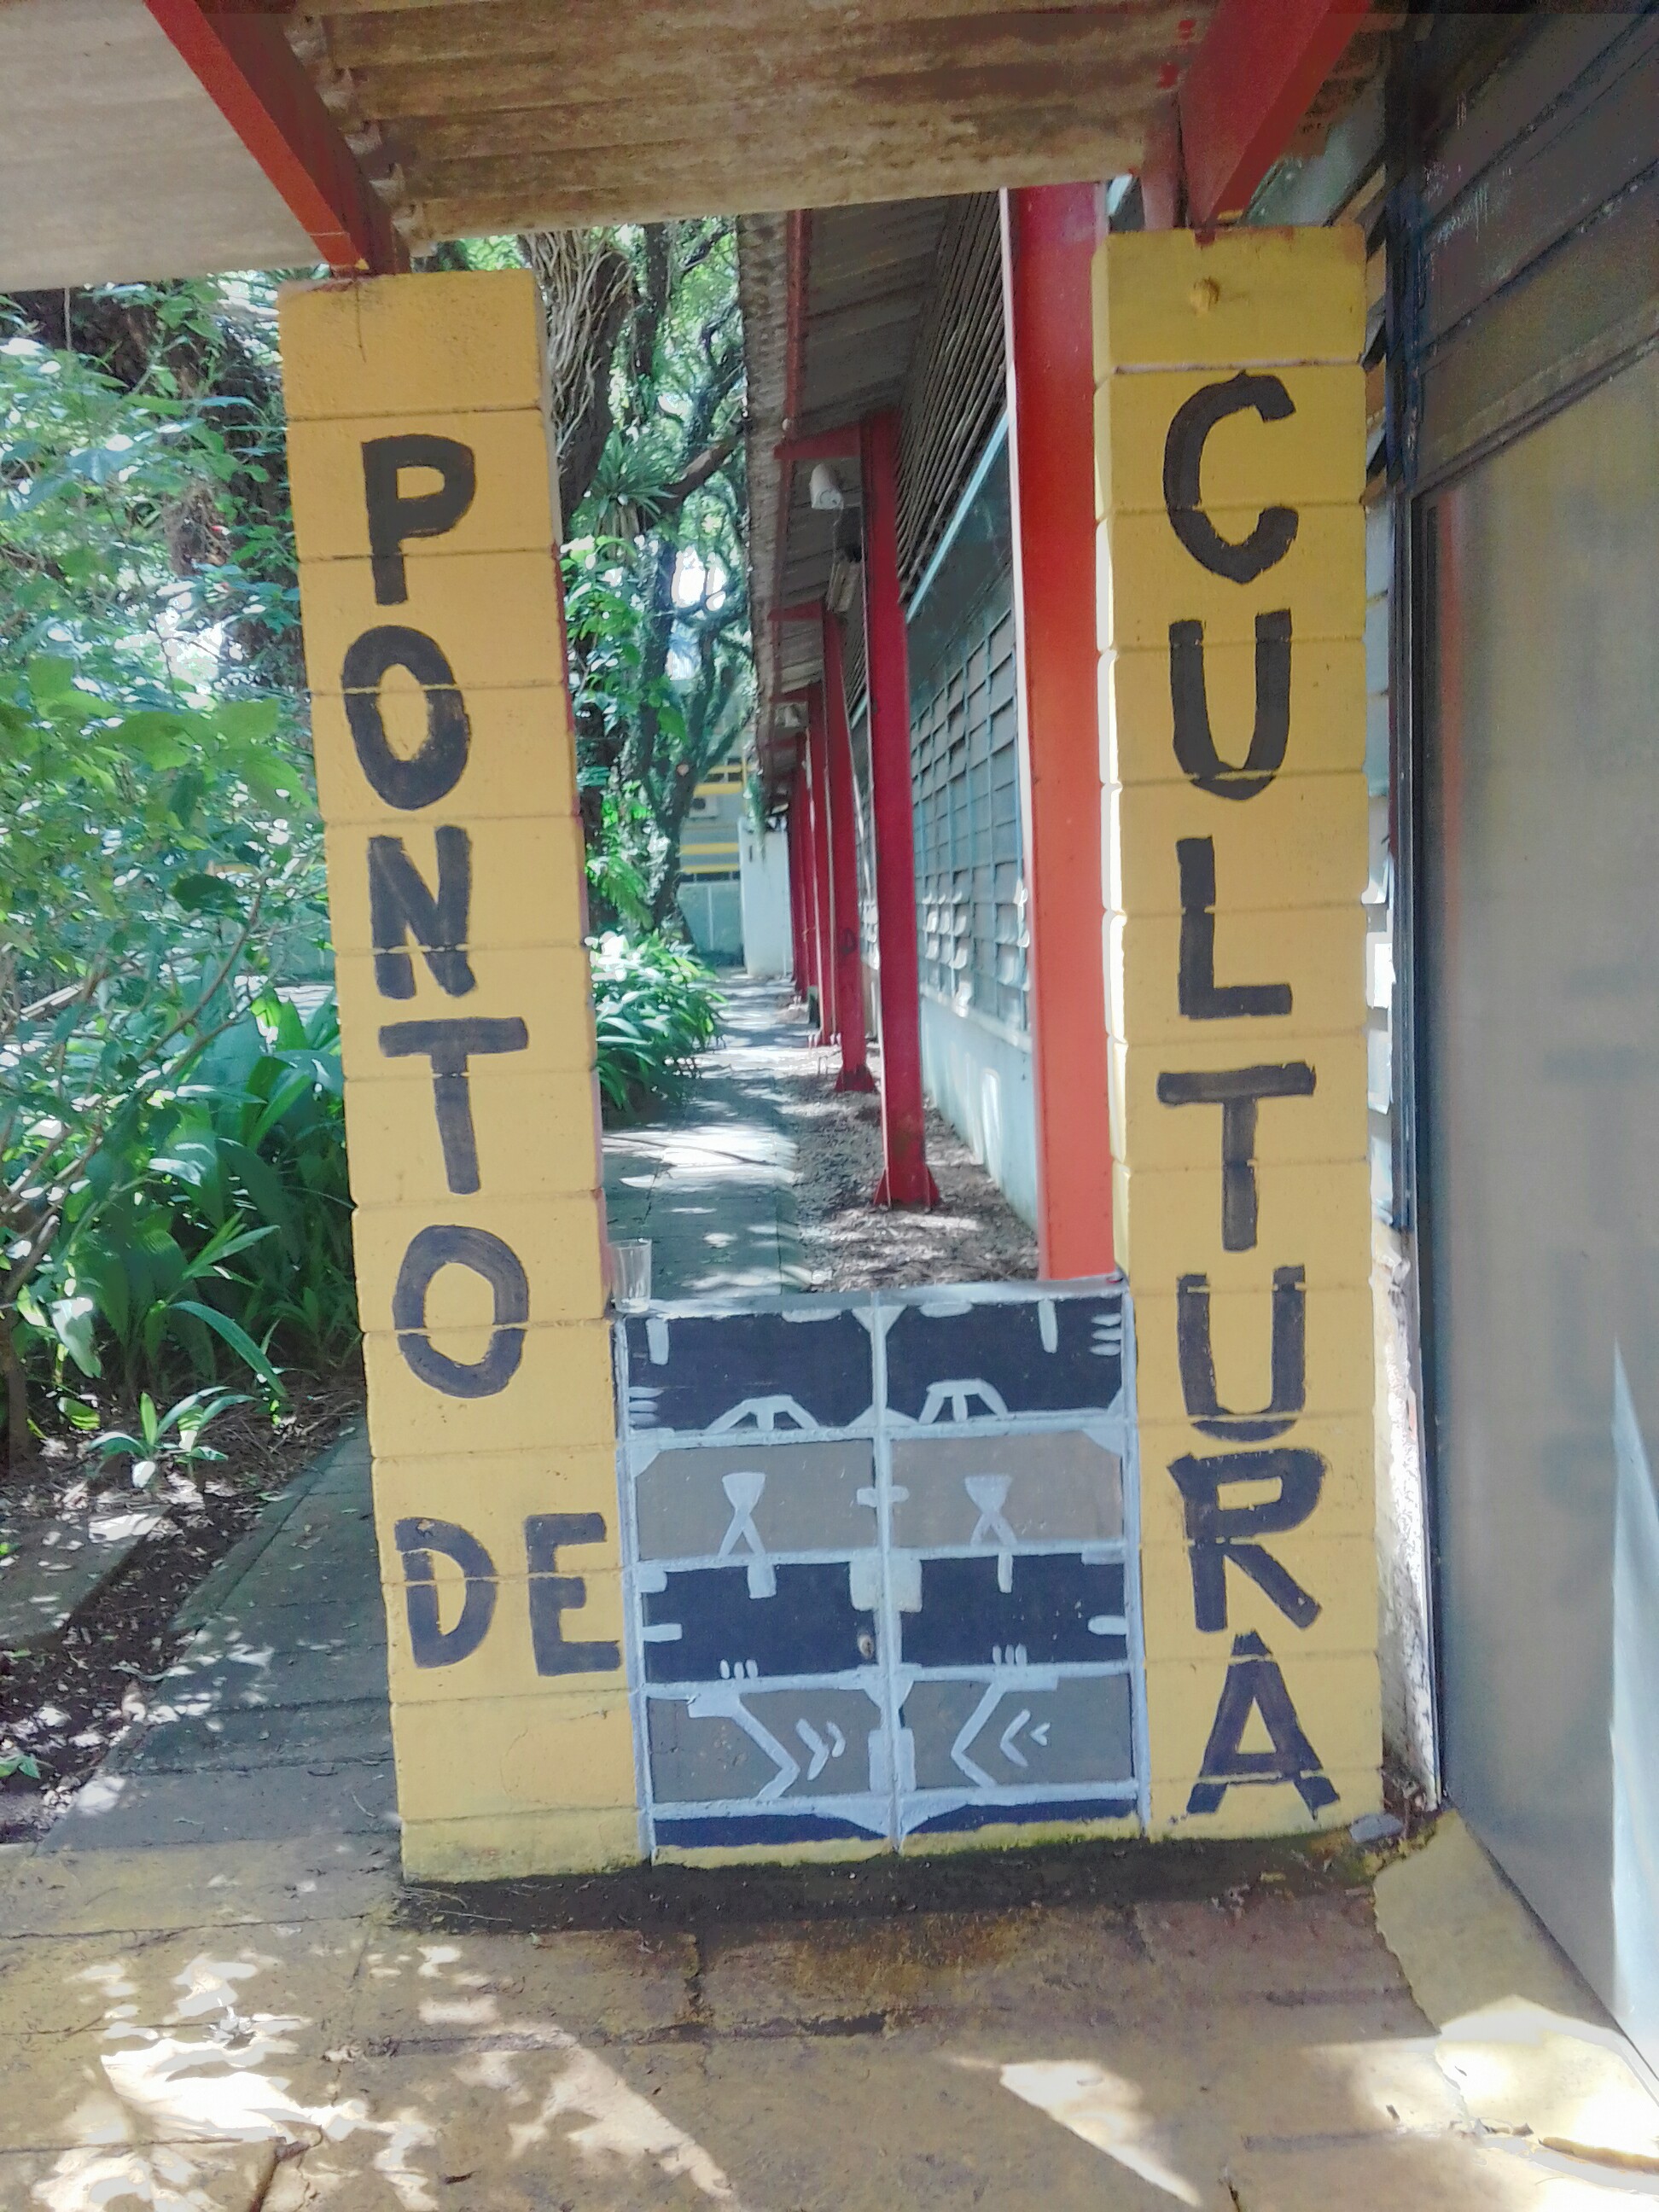 PONTO
DE
CULTURA